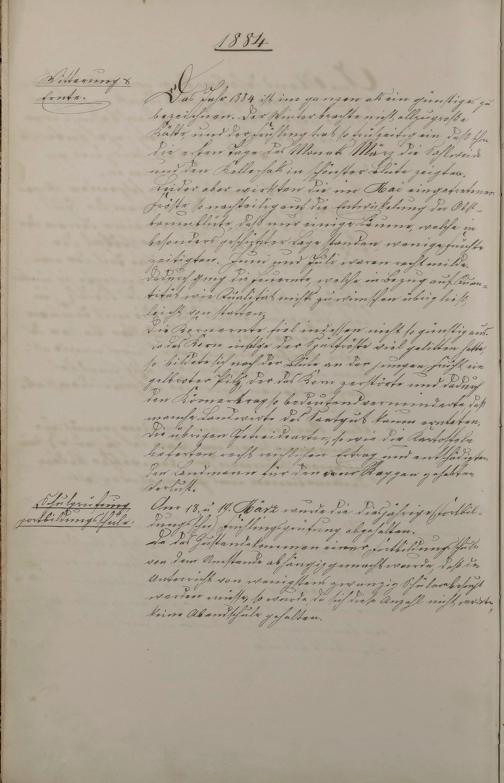 1884
Witterung &
Ernte.
Das Jahr 1884 ist im ganzen als ein günstiges zu
bezeichnen. Der Winter brachte nicht allzugroße
Kälte und der Frühling trat so frühzeitig ein, daß schon
die ersten Tage des Monats März die Schlüssel
und den Kellerhals in schönster Blüte zeigten.
Leider aber wirkten die im Mai eingetretenen
Fröste so nachteilig auf die Entwickelung der Obst-
baumblüte, daß nur einige Bäume, welche in
besonders geschützter Lage standen wenige Früchte
zeitigten. Juni und Juli waren recht milde,
dadurch ging die Heuernte, welche in Bezug auf Quan-
tität wie Qualität nichts zu wünschen übrig ließ,
leicht von statten.
Die Kornernte fiel indessen nicht so günstig aus.
Da das Korn infolge der Spätfröste viel gelitten hatte,
so bildete sich nach der Blüte an der jungen Frucht ein
gelbroter Pilz, der das Korn zerstörte und dadurch
den Körnerertrag so bedeutend verminderte, daß
manche Landwirte das Saatgut kaum ernteten.
Die übrigen Getreidearten, so wie die Kartoffeln
lieferten recht reichlichen Ertrag und entschädigten
den Landmann für den am Roggen gehabten
Verlust.
Schulprüfung
Fortbildungsschule.
Am 18. u. 19. März wurde die diesjährige Fortbil-
dungs Frühlingsprüfung abgehalten.
Da das Zustandekommen einer Fortbildungsschule
von dem Umstande abhängig gemacht wurde, daß der
Unterricht von wenigstens zwanzig Schülern besucht
werden müsse, so wurde, da sich diese Anzahl nicht
keine Abendschule gehalten.